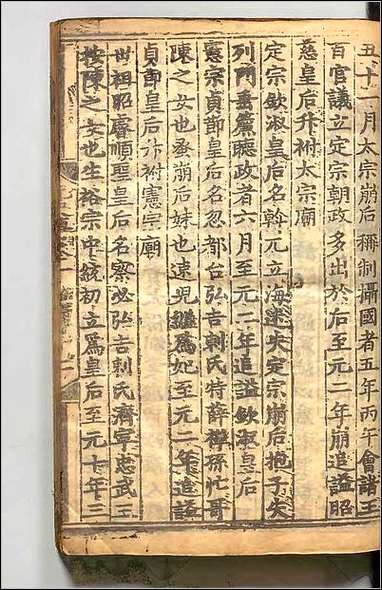 丑十一月太宗崩后稱制攝國者五年丙午會諸王
百官議立定宗朝政多出於后至元二年崩追諡昭
慈皇后升祔太宗廟
定宗欽淑皇后名斡元立海迷失定宗崩后抱子失
列門垂簾聽政者六月至元二年追諡欽淑皇后
憲宗貞節皇后名忽都台弘吉剌氏特薛禪孫忙哥
陳之女也蚤崩后妹也速兒繼爲妃至元二年追諡
貞節皇后升祔憲宗廟
世祖昭睿順聖皇后名察必弘吉剌氏濟寧忠武王
按陳之女也生裕宗中統初立爲皇后至元十年三